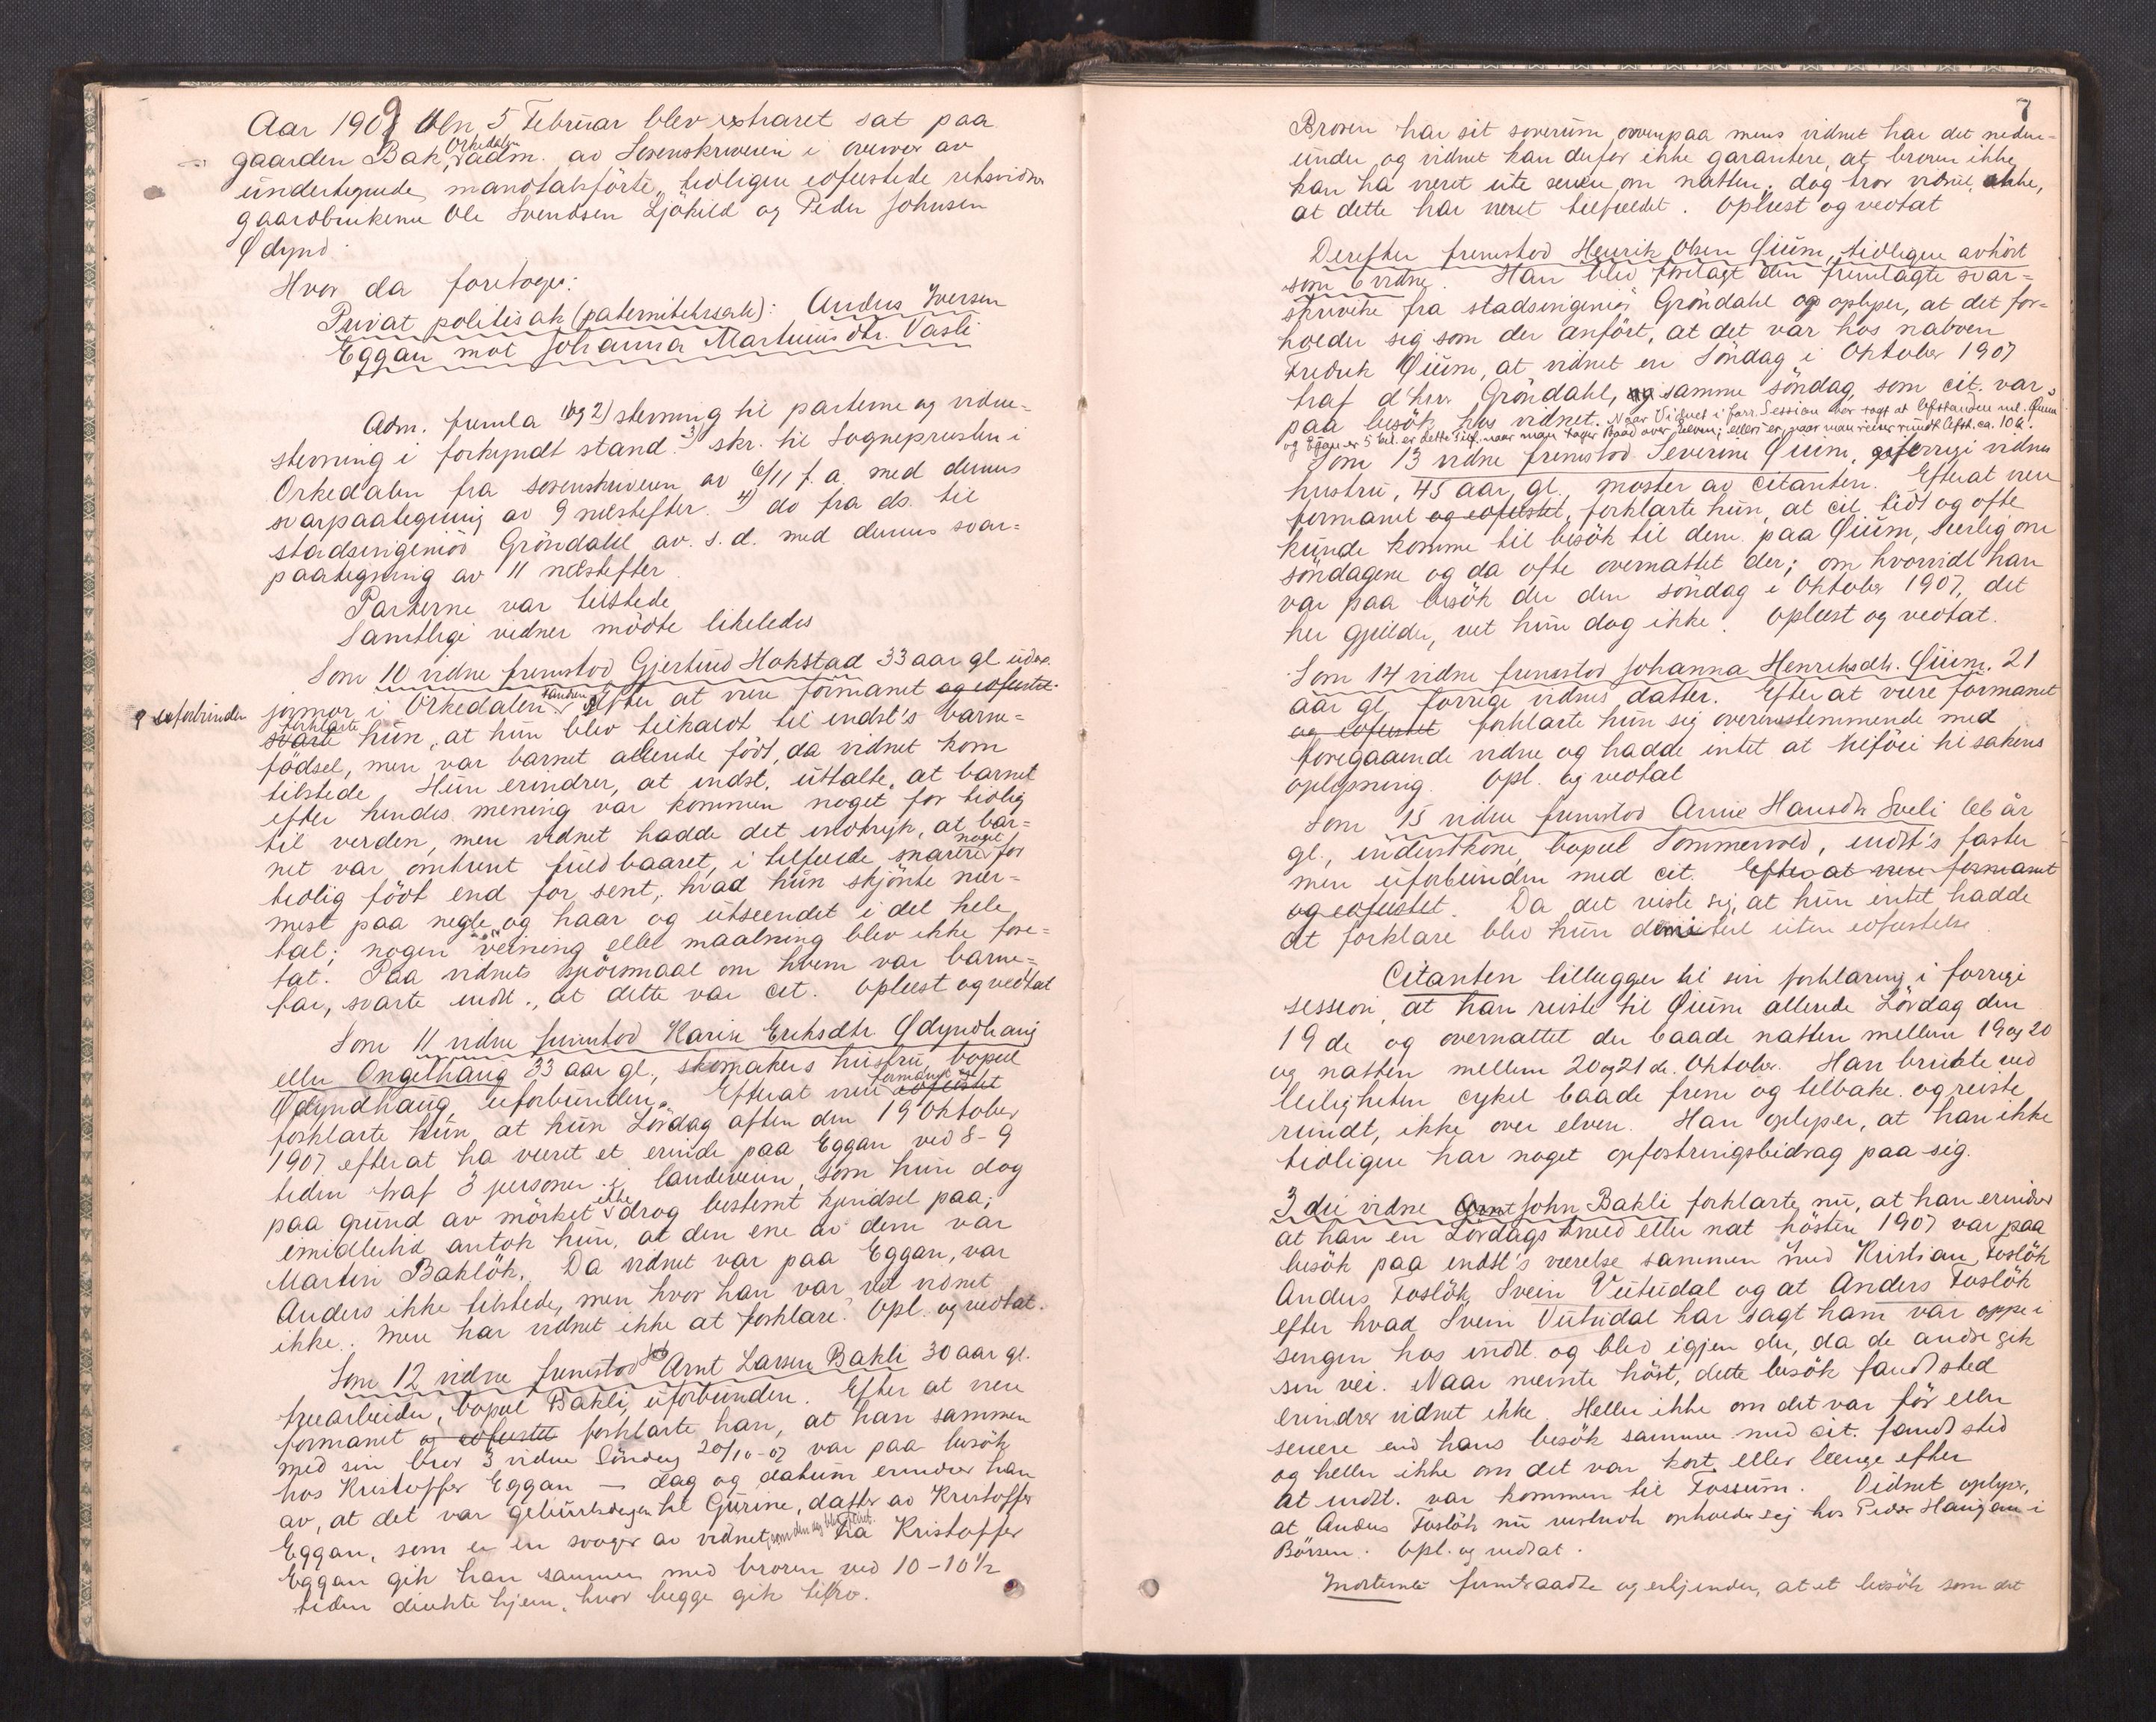 Aar 1909 den 5 Februar blev extraret sat paa
gaarden Bak, Orkedalen adm. av Sorenskriveren i overvær av
undertegnede mandtalsförte, tidligere edfæstede retsvidner
gaardbrukerne Ole Svendsen Ljökild og Peder Johnsen
Ødynd.
Hvor da foretoges:
Privat politisak (paternitetssak): Anders Iversen
Eggan mot Johanna Martinusdtr. Vasli
Adm. fremla 1) og 2) stevning til parterne og vidne-
stevning i forkyndt stand. 3) skr. til Sognepresten i
Orkedalen fra sorenskriveren av 6/11 f.a. med dennes
svarpaategning av 9 næstefter. 4) do fra ds. til
stadsingeniör Gröndahl av s.d. med dennes svar-
paategning av 11 næstefter.
Parterne var tilstede
Samtlige vidner mödte likeledes
Som 10 vidne fremstod Gjertrud Hokstad 33 aar gl. 
jormor i Orkedalen. Efter at være formanet og edfæstet
9 uforbunden
svarte forklarte hun, at hun blev tilkaldt til indst's barne-
födsel, men var barnet allerede född, da vidnet kom
tilstede. Hun erindrer, at indst. uttalte, at barnet
efter hendes mening var kommen noget for tidlig
til verden, men vidnet hadde det indtryk, at bar-
net var omtrent fuldbaaret, i tilfælde snarere noget for
tidlig född end for sent, hvad hun skjönte nær-
mest paa negle og haar og utseendet i det hele
tat; nogen veining eller maalning blev ikke fore-
tat. Paa vidnets spörsmaal om hvem var barne-
far, svarte indst., at dette var cit. Oplæst og vedtat
Som 11 vidne fremstod Karin Eriksdtr. Ødyndhaug
eller Ongelhaug 33 aar gl., skomakers hustru, bopæl
Ødyndhaug, uforbunden. Efterat være formanet og edfæstet
forklarte hun, at hun Lördag aften den 19 Oktober
1907 efterat ha været et erinde paa Eggan ved 8-9
tiden traf 3 personer i landeveien, som hun dog
paa grund av mörket ikke drog bestemt kjendsel paa;
imidlertid antok hun, at den ene av dem var
Martin Baklök. Da vidnet var paa Eggan, var
Anders ikke tilstede, men hvor han var vet vidnet
ikke. Mere har vidnet ikke at forklare. Opl. og vedtat.
Som 12 vidne fremstod Arnt Larsen Bakli 30 aar gl.
træarbeider, bopæl Bakli, uforbunden. Efter at være
formanet og edfæstet forklarte han, at han sammen
med sin bror 3 vidne Söndag 20/10-07 var paa besök
hos Kristoffer Eggan – dag og datum erindrer han
av, at det var geburtsdagen til Gurine, datter av Kristoffer
Eggan, som er en svoger av vidnet, som den dag blev feiret. Fra Kristoffer
Eggan gik han sammen med broren ved 10-10 1/2
tiden direkte hjem, hvor begge gik tilro.
7
Broren har sit soverum ovenpaa mens vidnet har det neden-
under og vidnet kan derfor ikke garantere, at broren ikke
kan ha været ute senere om natten; dog tror vidnet ikke,
at dette har været tilfældet. Oplæst og vedtat
Derefter fremstod Henrik Olsen Qium, tidligere avhört
som 6 vidne. Han blev forelagt den fremlagte svar-
skrivelse fra stadsingeniör Gröndahl og oplyser, at det for-
holder sig som der anfört, at det var hos naboen
Fredrik Qium, at vidnet en Söndag i Oktober 1907
traf d'hrr. Gröndahl, og samme söndag, som cit. var
paa besök hos vidnet. Naar Vidnet i forr. Session har sagt at Afstanden ml. Qium
og Eggan er 5 kil. er dette Tilf. naar man tager Baad over elven; ellers er, naar man reiser rundt Afst. ca. 10 k.
Som 13 vidne fremstod Severine Qium, forrige vidnes
hustru, 45 aar gl., moster av citanten. Efterat være
formanet og edfæstet, forklarte hun, at cit. tidt og ofte
kunde komme til besök til dem paa Qium, særlig om
söndagene og da ofte overnattet der; om hvorvidt han
var paa besök der den söndag i Oktober 1907, det
her gjælder, vet hun dog ikke. Oplæst og vedtat.
Som 14 vidne fremstod Johanna Henriksdtr. Qium, 21
aar gl., forrige vidnes datter. Efter at være formanet
og edfæstet forklarte hun sig overensstemmende med
foregaaende vidne og hadde intet at tilföie til sakens
oplysning. Opl. og vedtat
Som 15 vidne fremstod Anne Hansdtr Sveli 66 år
gl., inderstkone, bopæl Sommervold, indst's faster
men uforbunden med cit. Efter at være formanet
og edfæstet. Da det viste sig, at hun intet hadde
at forklare blev hun demitert uten edfæstelse
Citanten tillægger til sin forklaring i forrige
session, at han reiste til Qium allerede Lördag den
19de og overnattet der baade natten mellem 19 og 20
og natten mellem 20 og 21de Oktober. Han brukte ved
leiligheten cykel baade frem og tilbake og reiste
rundt, ikke over elven. Han oplyser, at han ikke
tidligere har noget opfostringsbidrag paa sig.
3die vidne Arnt John Bakli forklarte nu, at han erindrer
at han en Lördags kveld eller nat hösten 1907 var paa
besök paa indst's værelse sammen med Kristian Foslök
Anders Foslök, Svein Vutudal og at Anders Foslök
efter hvad Svein Vutudal har sagt ham var oppe i
sengen hos indst. og blev igjen der, da de andre gik
sin vei. Naar nævnte höst, dette besök fandt sted
erindrer vidnet ikke. Heller ikke om det var för eller
senere end hans besök sammen med cit. fandt sted
og heller ikke om det var kort eller længe efter
at indst. var kommen til Fossum. Vidnet oplyser,
at Anders Foslök nu opholder sig hos Peder Haugan i
Börsen. Opl. og vedtat.
Indstevnte fremtraadte og erkjender, at et besök som det